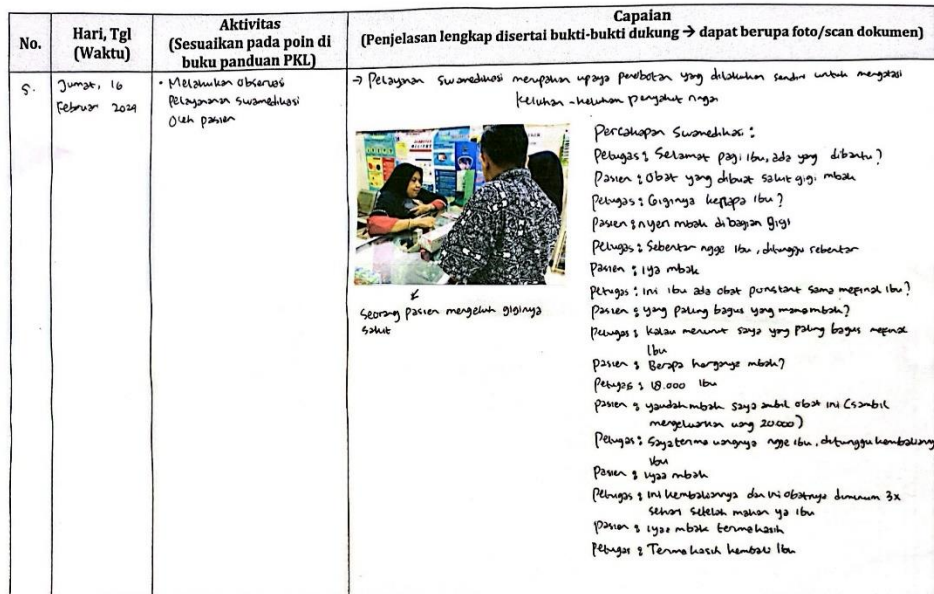 No.
Hari, Tgl
(Waktu)
Aktivitas
(Sesuaikan pada poin di
buku panduan PKL)
Capaian
(Penjelasan lengkap disertai bukti-bukti dukung → dapat berupa foto/scan dokumen)
5.
Jumat, 16
Februari 2024
• Melakukan observasi
Pelayanan swamedikasi
Oleh pasien
→ Pelayanan swamedikasi merupakan upaya pengobatan yang dilakukan sendiri untuk mengatasi
keluhan-keluhan penyakit ringan
Seorang pasien mengeluh giginya
sakit
Percakapan Swamedikasi :
Petugas : Selamat pagi Ibu, ada yang dibantu ?
Pasien : Obat yang dibuat sakit gigi mbak
Petugas : Giginya kenapa Ibu ?
Pasien : nyeri mbak dibagian gigi
Petugas : Sebentar ngge Ibu, ditunggu sebentar
Pasien : iya mbak
Petugas : ini Ibu ada obat ponstant sama mefinal Ibu ?
Pasien : yang paling bagus yang mana mbak?
Petugas : Kalau menurut saya yang paling bagus mefinal
Ibu
Pasien : Berapa harganya mbak?
Petugas : 18.000 Ibu
Pasien : yaudah mbak saya ambil obat ini (sambil
mengeluarkan uang 20.000)
Petugas : Saya terima uangnya ngge Ibu, ditunggu kembaliannya
Ibu
Pasien : iyaa mbak
Petugas : ini kembaliannya dan ini obatnya diminum 3x
sehari setelah makan ya Ibu
Pasien : iyaa mbak terimakasih
Petugas : Terima kasih kembali Ibu